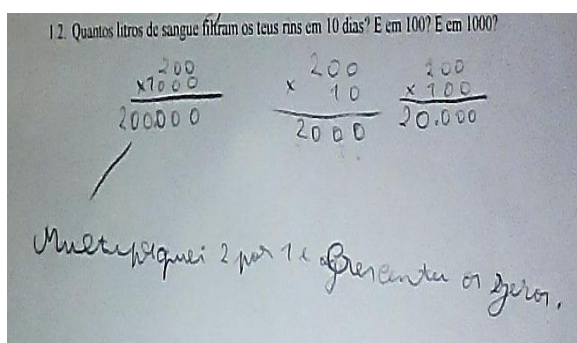 1.2. Quantos litros de sangue filtram os teus rins em 10 dias? E em 100? E em 1000?
200
x1000
200.000
200
x 10
2000
200
x 100
20.000
Multipliquei 2 por 1 e os zeros.